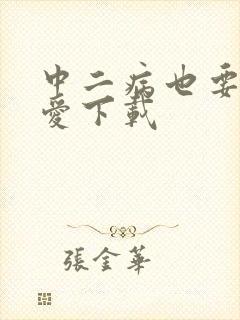 中二病也要
愛下載
張金華